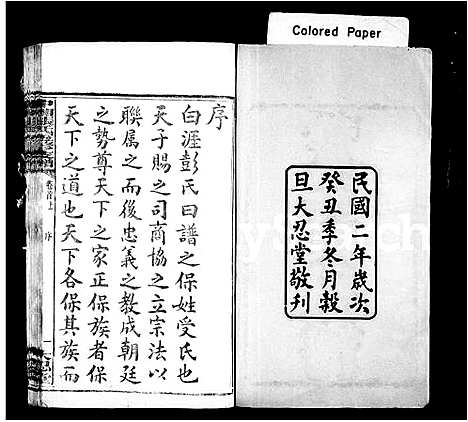 Colored Paper
民國二年歲次
癸丑季冬月穀
旦大忍堂敬刋
序
白渥彭氏曰譜之保姓受氏也
天子賜之司商協之立宗法以
聯属之而後忠義之教成朝廷
之勢尊天下之家正保族者保
天下之道也天下各保其族而
卷首上
序
一